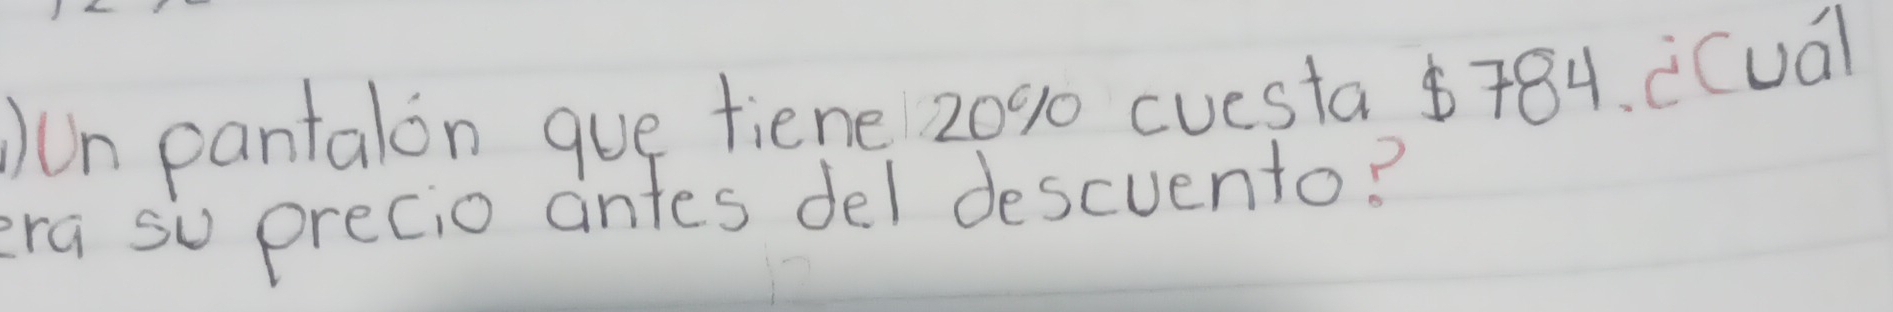 )Un pantalón que tiene 20% cuesta $784. ¿Cuál
era su precio antes del descuento?